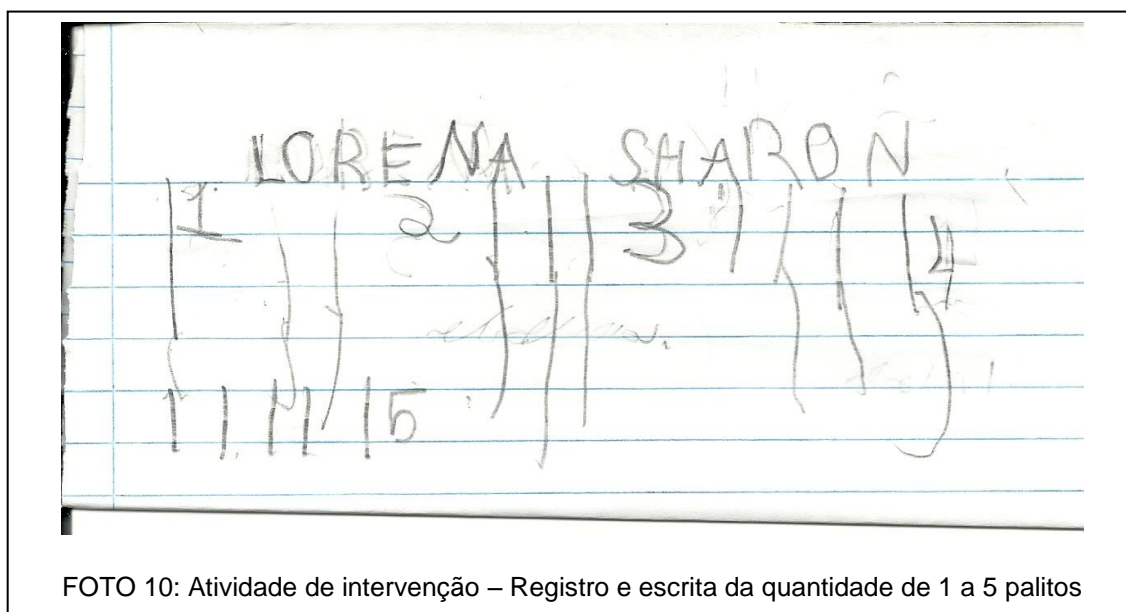 LORENA SHARON
| 1 || 2 ||| 3 |||| 4
||||| 5
FOTO 10: Atividade de intervenção – Registro e escrita da quantidade de 1 a 5 palitos